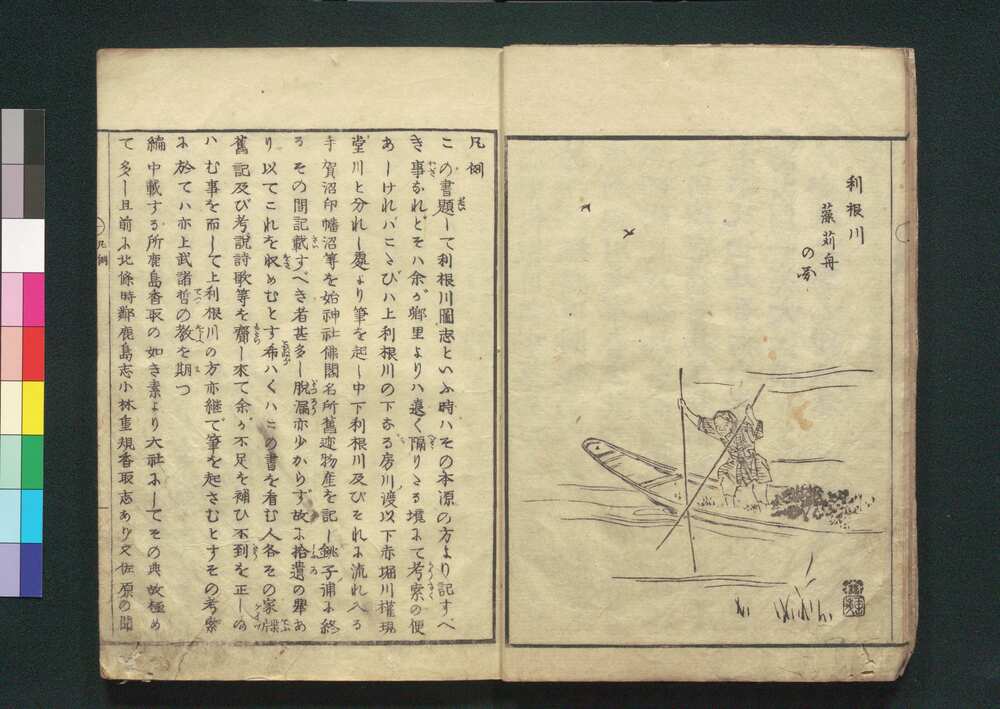 利根川
藻苅舟
の図
凡例
この書題して利根川圖志といふ時ハその本源の方より記すべ
き事なれどそハ余が郷里よりハ遠く隔りたる境にて考察の便
あしけれバこたびハ上利根川の下なる房川渡以下赤堀川權現
堂川と分れし處より筆を起し中下利根川及びそれに流れ入る
手賀沼印幡沼等を始神社佛閣名所舊迹物産を記し銚子浦に終
る その間記載すべき者甚多し脱漏亦少からず故に拾遺の擧あ
り以てこれを収めむとす希ハくハこの書を看む人各その家牒
舊記及び考説詩歌等を齎し來て余が不足を補ひ不到を正し給
ハむ事を而して上利根川の方亦継で筆を起さむとすその考察
に於てハ亦上武諸哲の教を期つ
編中載する所鹿島香取の如き素より大社にしてその典故極め
て多し且前に北條時鄰鹿島志小林重規香取志あり又佐原の
凡例